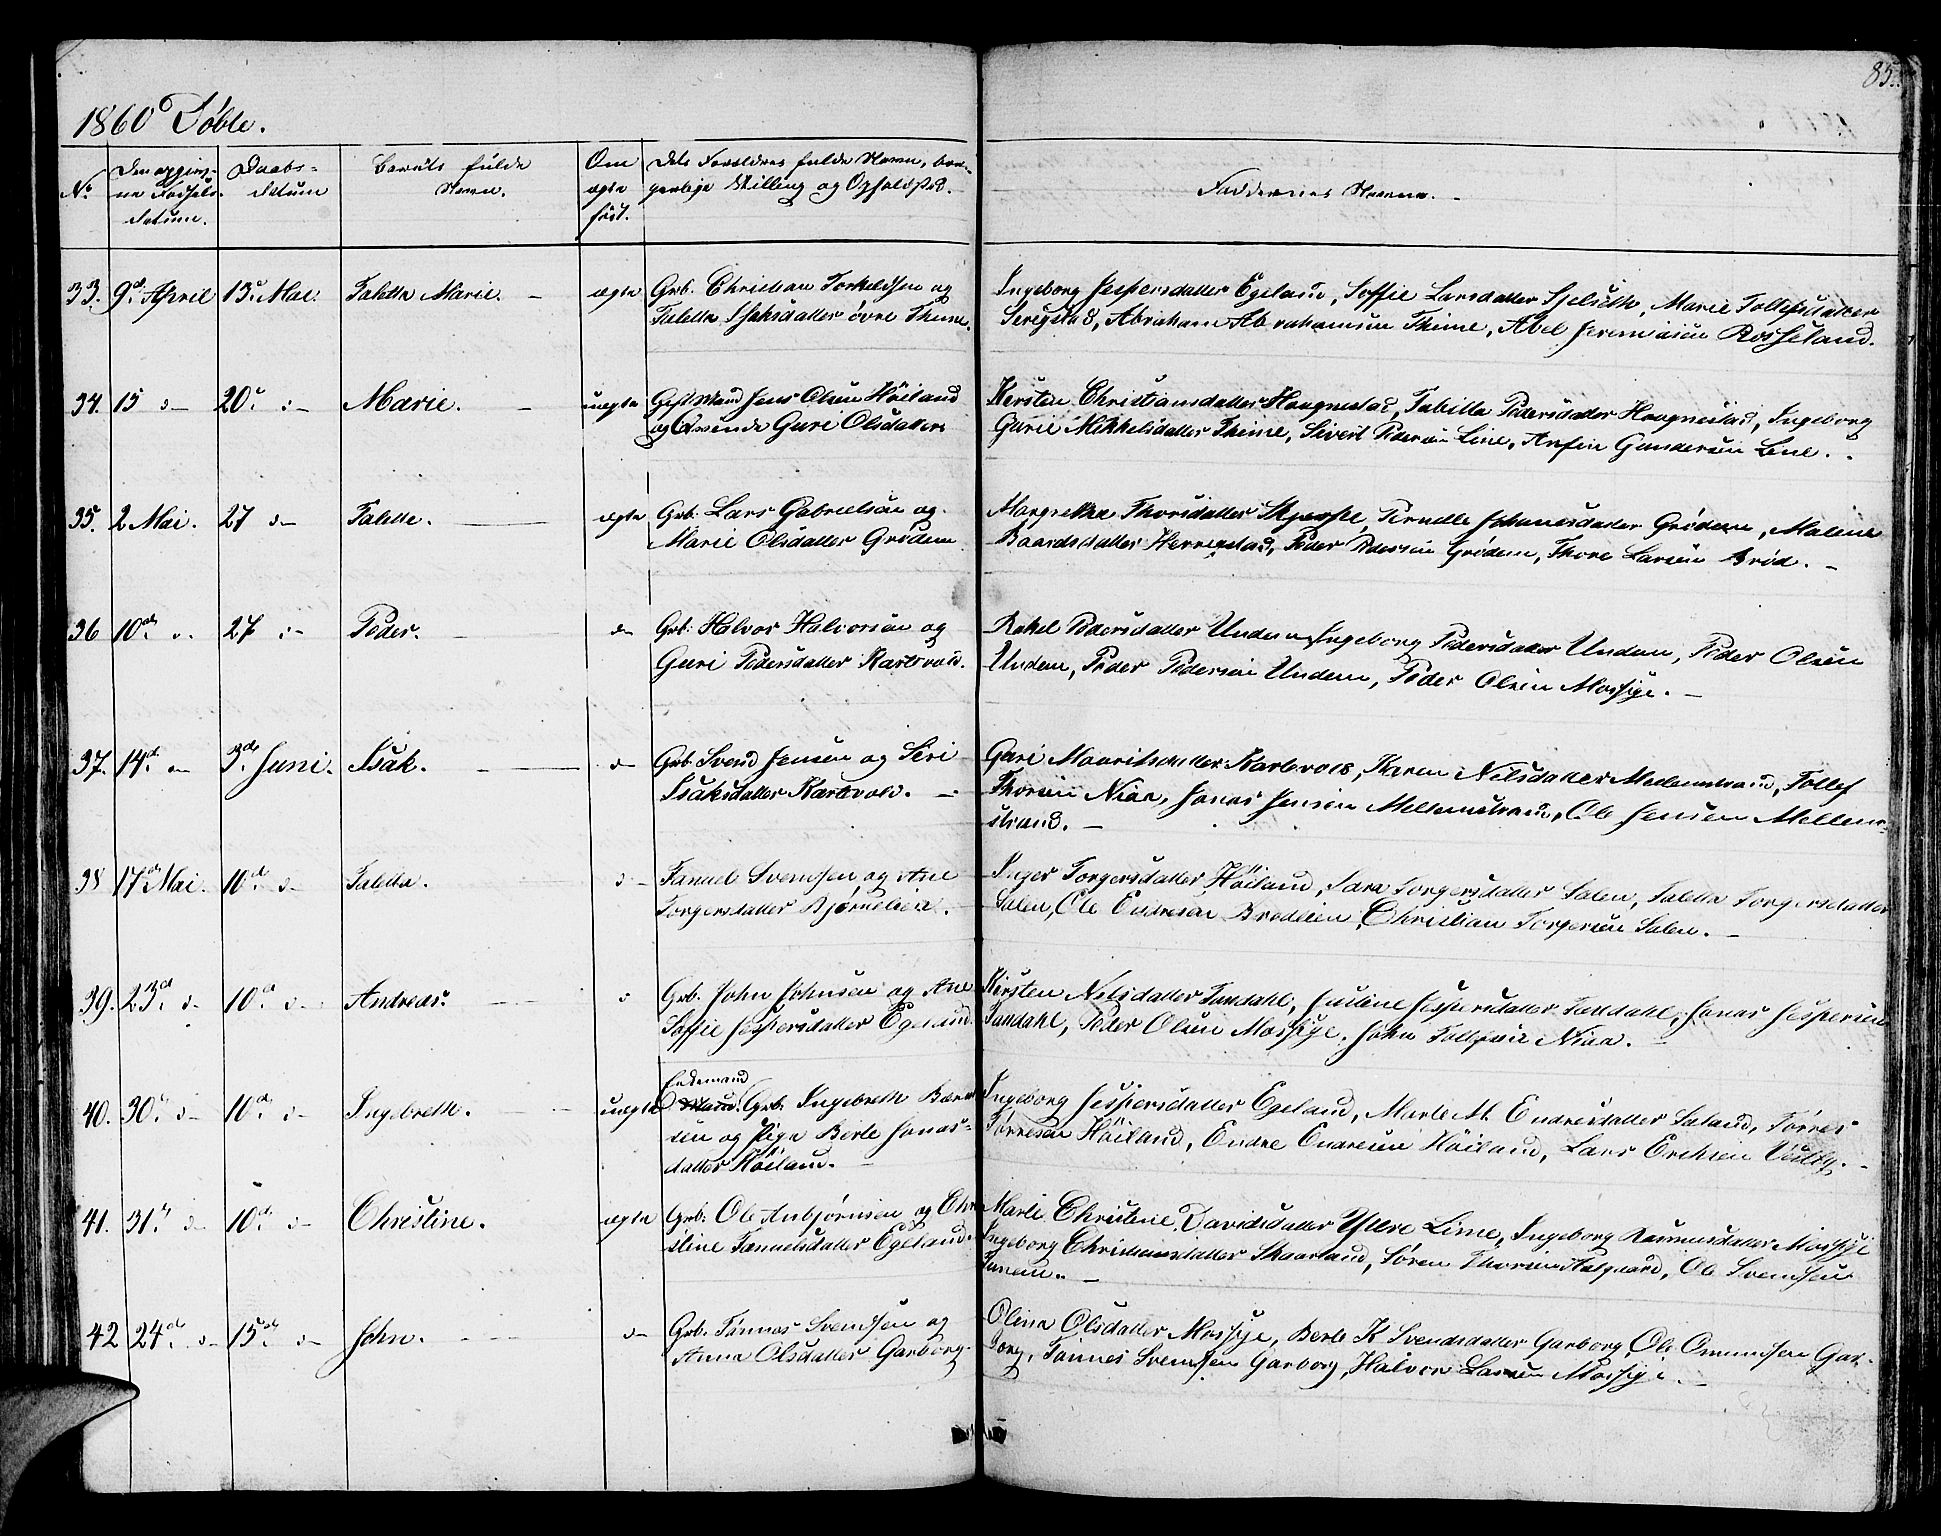 85.
1860 Døbte.
No
Den opgivne Fødsels-datum.
Daabs-datum
Barnets fulde Navn.
Om ægte født.
Dets Forældres fulde Navn, borgerlige Stilling og Opholdssted.
Faddernes Navne.
33. 9de April 13de Mai. Taletta Marie. ægte Grb. Christian Torkeldsen og
Taletta Isaksdatter øvre Thime.
Ingeborg Jespersdatter Egeland, Soffie Larsdatter Sjelseth, Marie Tollefsdatter
Serigstad, Abraham Abrahamsen Thime, Abel Jeremiasen Rosseland.
34. 15 d– 20de d– Marie. uægte Gift Mand Jens Olsen Höiland
og Qvinde Guri Olsdatter
Kersten Christiansdatter Haagnestad, Tabitta Pedersdatter Haagnestad, Ingeborg
Gurie Mikkelsdatter Thime, Sivert Pedersen Line, Arfin Gundersen Line.
35. 2 Mai. 27 d– Talette. ægte Grb. Lars Gabrielsen og
Marie Olsdatter Grødem
Margrethe Thorsdatter Skjerpe, Pernelle Johanesdatter Grødem, Malene
Baardsdatter Herregstad, Peder Pedersen Grødem, Thore Larsen Brød.
36 10de d. 27 d– Peder. d– Grb. Halvor Halvorsen og
Guri Pedersdatter Kartevold.
Rakel Pedersdatter Undem, Ingeborg Pedersdatter Undem, Peder Olsen
Undem, Peder Pedersen Undem, Peder Olsen Mossige.
37. 14de d– 3de Juni. Isak. d– Grb. Svend Jensen og Siri
Isaksdatter Kartevold.
Guri Mauritsdatter Kartevold, Karen Nilsdatter Mellemstrand, Tollef
Thorsen Niaa, Jonas Jensen Mellemstrand, Ole Jensen Mellem-
strand.
38 17de Mai. 10de d– Taletta. d– Fanuel Svendsen og Ane
Torgersdatter Bjørnelien.
Inger Torgersdatter Höiland, Sara Torgersdatter Salen, Taletta Torgersdatter
Salen, Ole Endresen Brødlien, Christian Torgersen Salen.
39. 23de d– 10de d– Andreas. d Grb. John Johnsen og Ane
Soffie Jespersdatter Egeland.
Kirsten Nilsdatter Tandahl, Justine Jespersdatter Tandahl, Jonas Jespersen
Tandahl, Peder Olsen Mossige, John Tollefsen Niaa.
40. 30de d– 10de d– Ingebreth. uægte Enkemand
Mand. Grb. Ingebreth Baard-
sen og Pige Berte Jonas-
datter Höiland.
Ingeborg Jespersdatter Egeland, Marte M. Endresdatter Saland, Tørres
Tørresen Höiland, Endre Endresen Höiland, Lars Erichsen Vestby.
41. 31te d– 10de d– Christine. ægte Grb. Ole Anbjørnsen og Chri-
stine Fanuelsdatter Egeland.
Marte Christine Davidsdatter Yttre Lime, Ingeborg Rasmusdatter Mossige
Ingeborg Christiansdatter Skaarland, Søren Thorsen Aalgaard, Ole Svendsen
Tunem.
42 24de d– 15de d– John. d– Grb. Tønnes Svendsen og
Anna Olsdatter Garborg.
Olina Olsdatter Mossige, Berte K Svendsdatter Garborg, Ole Omundsen Gar-
borg, Tønnes Svendsen Garborg, Halvor Larsen Mossige.